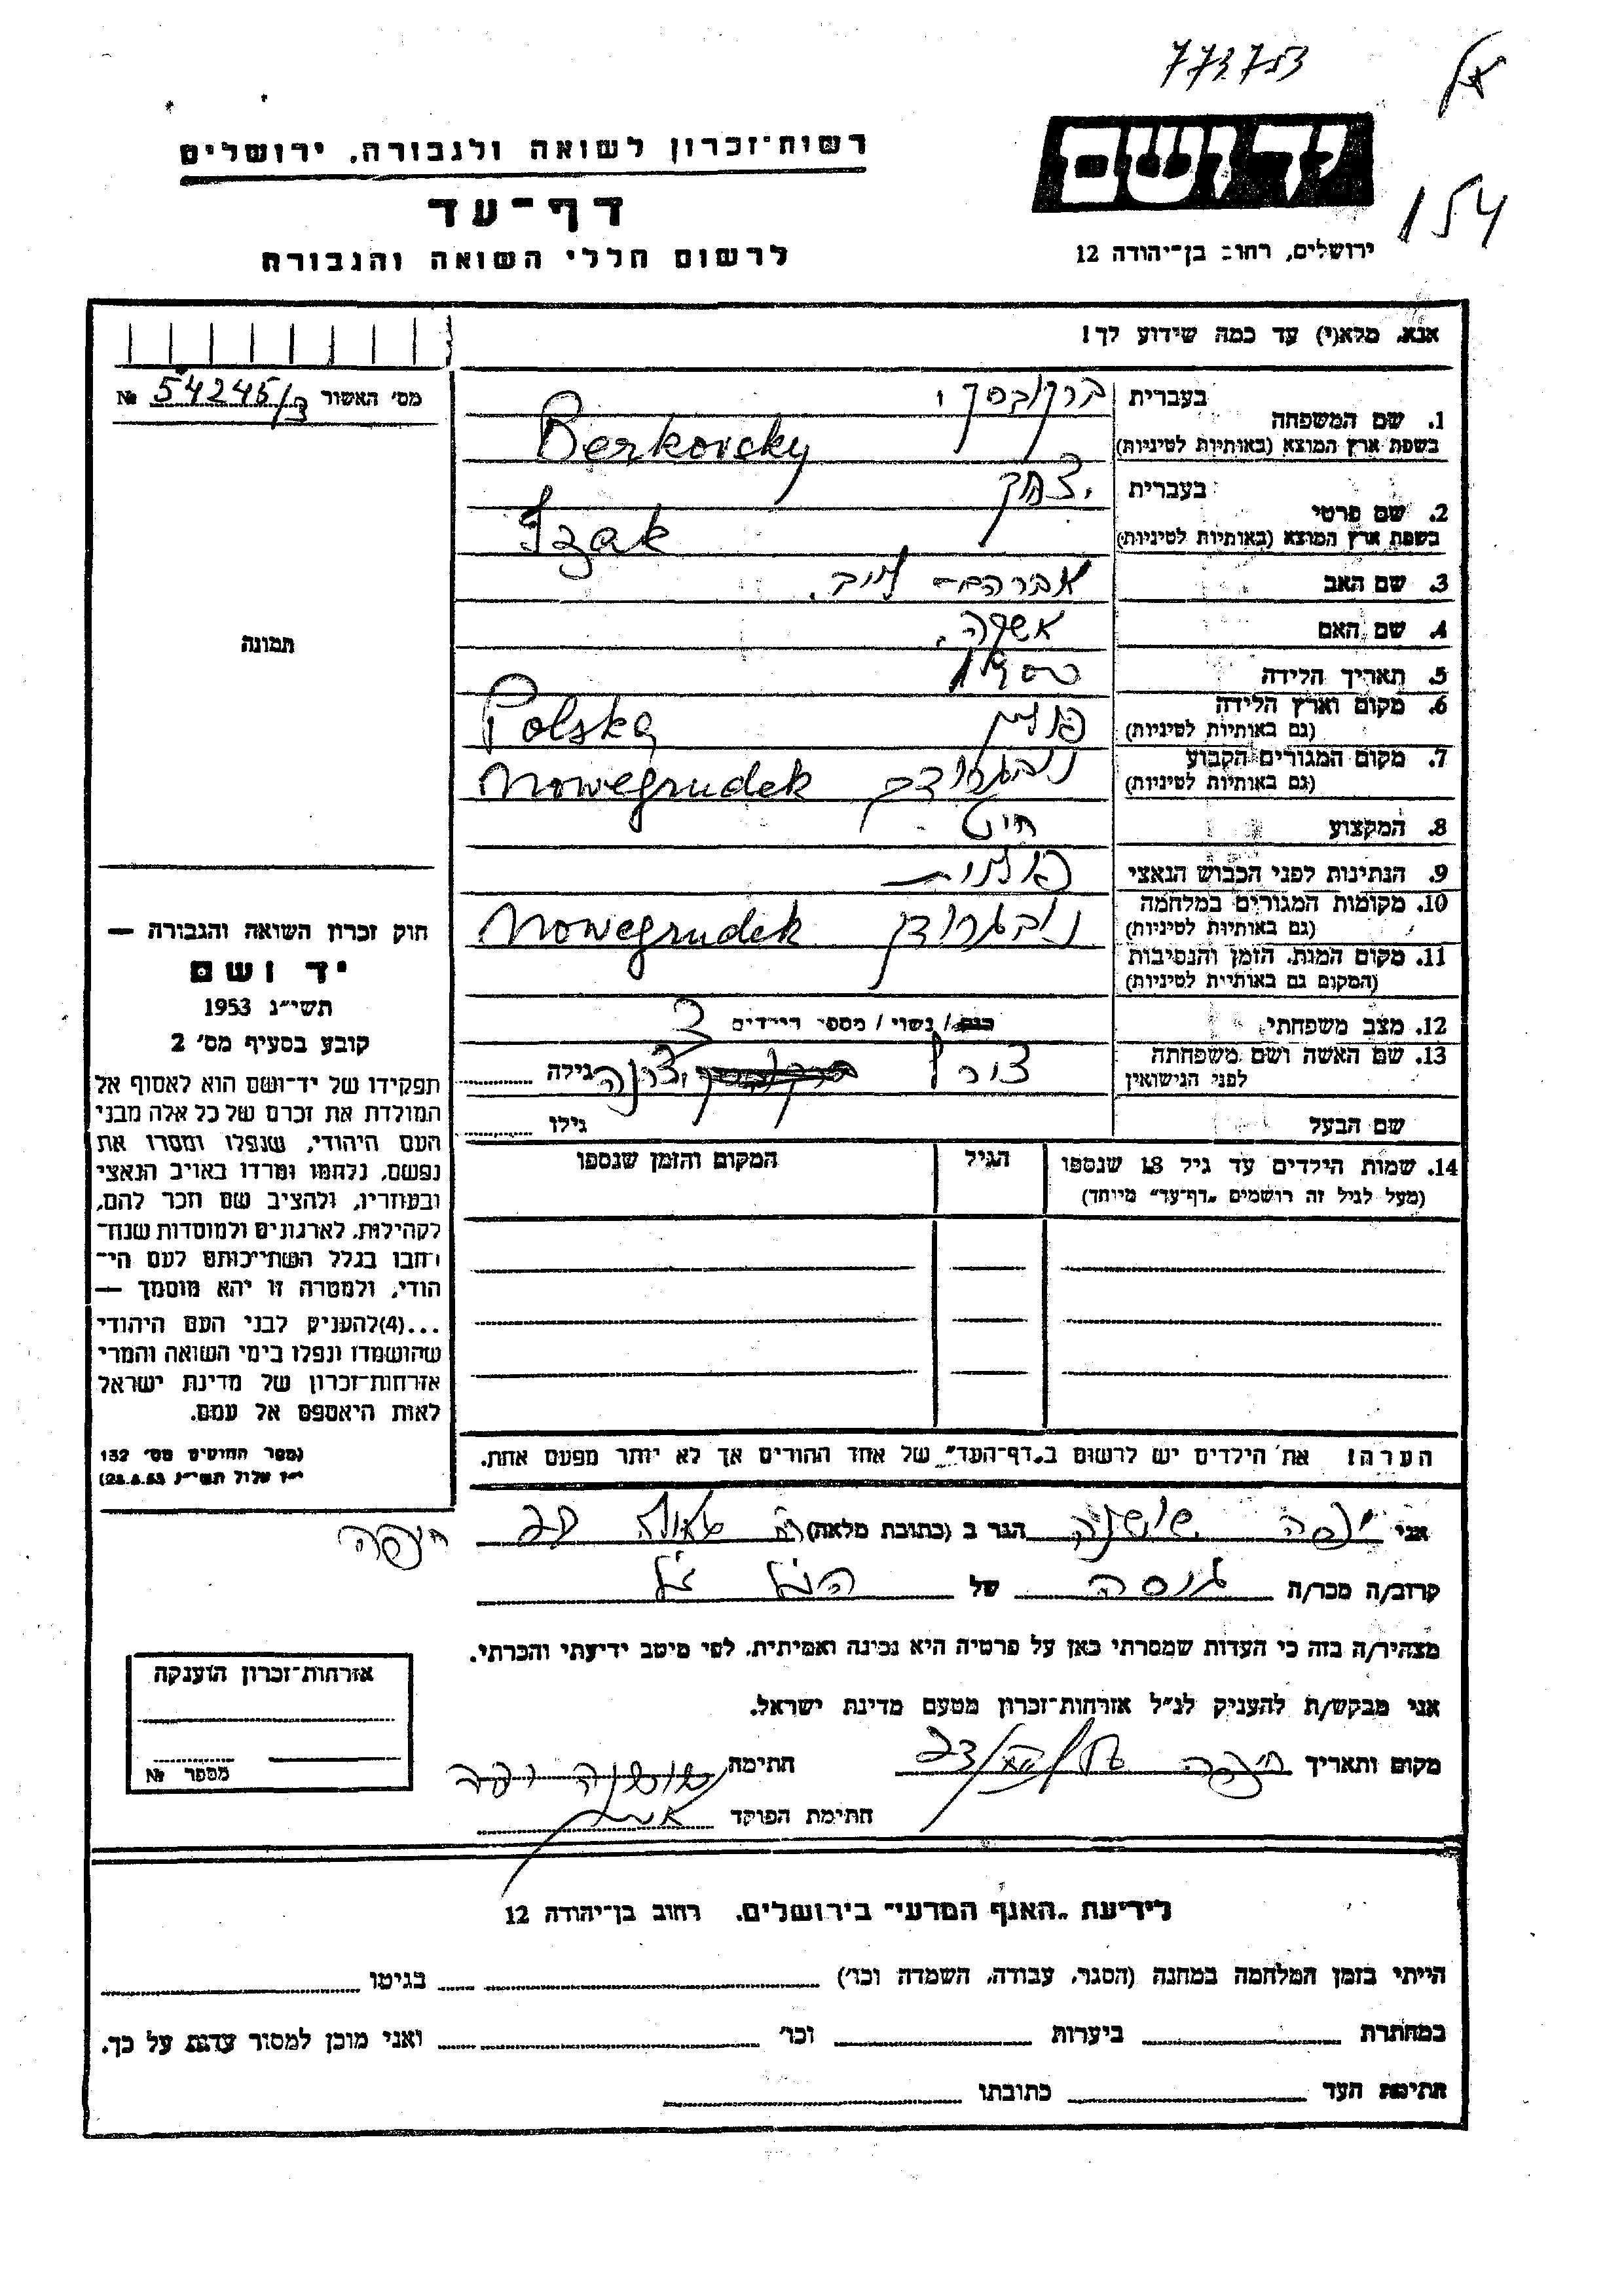 773753
154
יד ושם
ירושלים, רחוב בן־יהודה 12
רשות־זכרון לשואה ולגבורה, ירושלים
דף־עד
לרשום חללי השואה והגבורה
אנא, מלא(י) עד כמה שידוע לך!
מס׳ האשור 54245/ב №
1. שם המשפחה
בעברית ברקובסקי
בשפת ארץ המוצא (באותיות לטיניות) Berkovcky
2. שם פרטי
בעברית יצחק
בשפת ארץ המוצא (באותיות לטיניות) Izak
3. שם האב אברהם־
4. שם האם
5. תאריך הלידה 1900
6. מקום וארץ הלידה
(גם באותיות לטיניות) פולין Polska
7. מקום המגורים הקבוע
(גם באותיות לטיניות) נובגרודק Nowegrudek
8. המקצוע חייט
9. הנתינות לפני הכבוש הנאצי פולנית
10. מקומות המגורים במלחמה
(גם באותיות לטיניות) נובגרודק Nowegrudek
11. מקום המות, הזמן והנסיבות
(המקום גם באותיות לטיניות)
12. מצב משפחתי רווק / נשוי / מספר הילדים
13. שם האשה ושם משפחתה
לפני הנישואין גילה
שם הבעל גילו
14. שמות הילדים עד גיל 18 שנספו
(מעל לגיל זה רושמים „דף־עד״ מיוחד)
הגיל
המקום והזמן שנספו
הערה! את הילדים יש לרשום ב„דף־העד״ של אחד ההורים אך לא יותר מפעם אחת.
תמונה
חוק זכרון השואה והגבורה —
יד ושם
תשי״ג 1953
קובע בסעיף מס׳ 2
תפקידו של יד־ושם הוא לאסוף אל
המולדת את זכרם של כל אלה מבני
העם היהודי, שנפלו ומסרו את
נפשם, נלחמו ומרדו באויב הנאצי
ובעוזריו, ולהציב שם וזכר להם,
לקהילות, לארגונים ולמוסדות שנח־
רבו בגלל השתייכותם לעם הי־
הודי, ולמטרה זו יהא מוסמך —
...(4)להעניק לבני העם היהודי
שהושמדו ונפלו בימי השואה והמרי
אזרחות־זכרון של מדינת ישראל
לאות היאספם אל עמם.
(ספר החוקים מס׳ 132
י״ז אלול תשי״ג 28.8.53)
אני יפה שושנה הגר ב (כתובת מלאה) חיפה
קרוב/ה מכר/ה גיסה של הנ״ל ז״ל
מצהיר/ה בזה כי העדות שמסרתי כאן על פרטיה היא נכונה ואמיתית, לפי מיטב ידיעתי והכרתי.
אני מבקש/ת להעניק לנ״ל אזרחות־זכרון מטעם מדינת ישראל.
מקום ותאריך חיפה חתימה שושנה יפה
חתימת הפוקד
אזרחות־זכרון הוענקה
מספר №
לידיעת „האגף המדעי״ בירושלים, רחוב בן־יהודה 12
הייתי בזמן המלחמה במחנה (הסגר, עבודה, השמדה וכו׳) בגיטו
במחתרת ביערות וכו׳ ואני מוכן למסור עדות על כך.
חתימת העד כתובתו